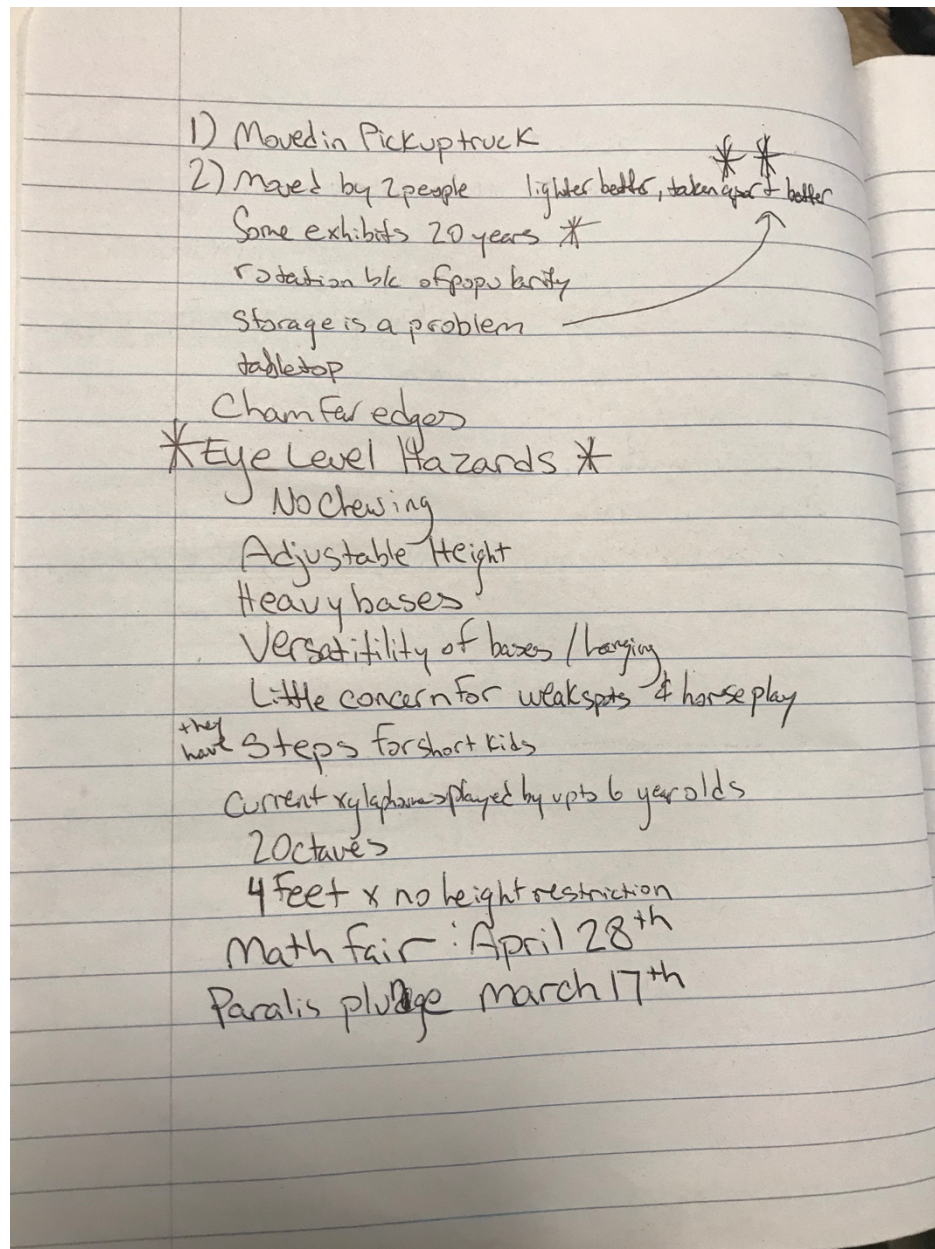 1) Moved in Pickup truck
2) Moved by 2 people lighter better, taken apart better
Some exhibits 20 years *
rotation b/c of popularity
Storage is a problem
tabletop
Chamfer edges
*Eye Level Hazards *
No Chewing
Adjustable Height
Heavy bases
Versatitility of bases / hanging
Little concern for weak spots & horseplay
they have Steps for short kids
Current xylaphones played by up to 6 year olds
2 Octaves
4 feet x no height restriction
Math fair : April 28th
Paralis plunge march 17th